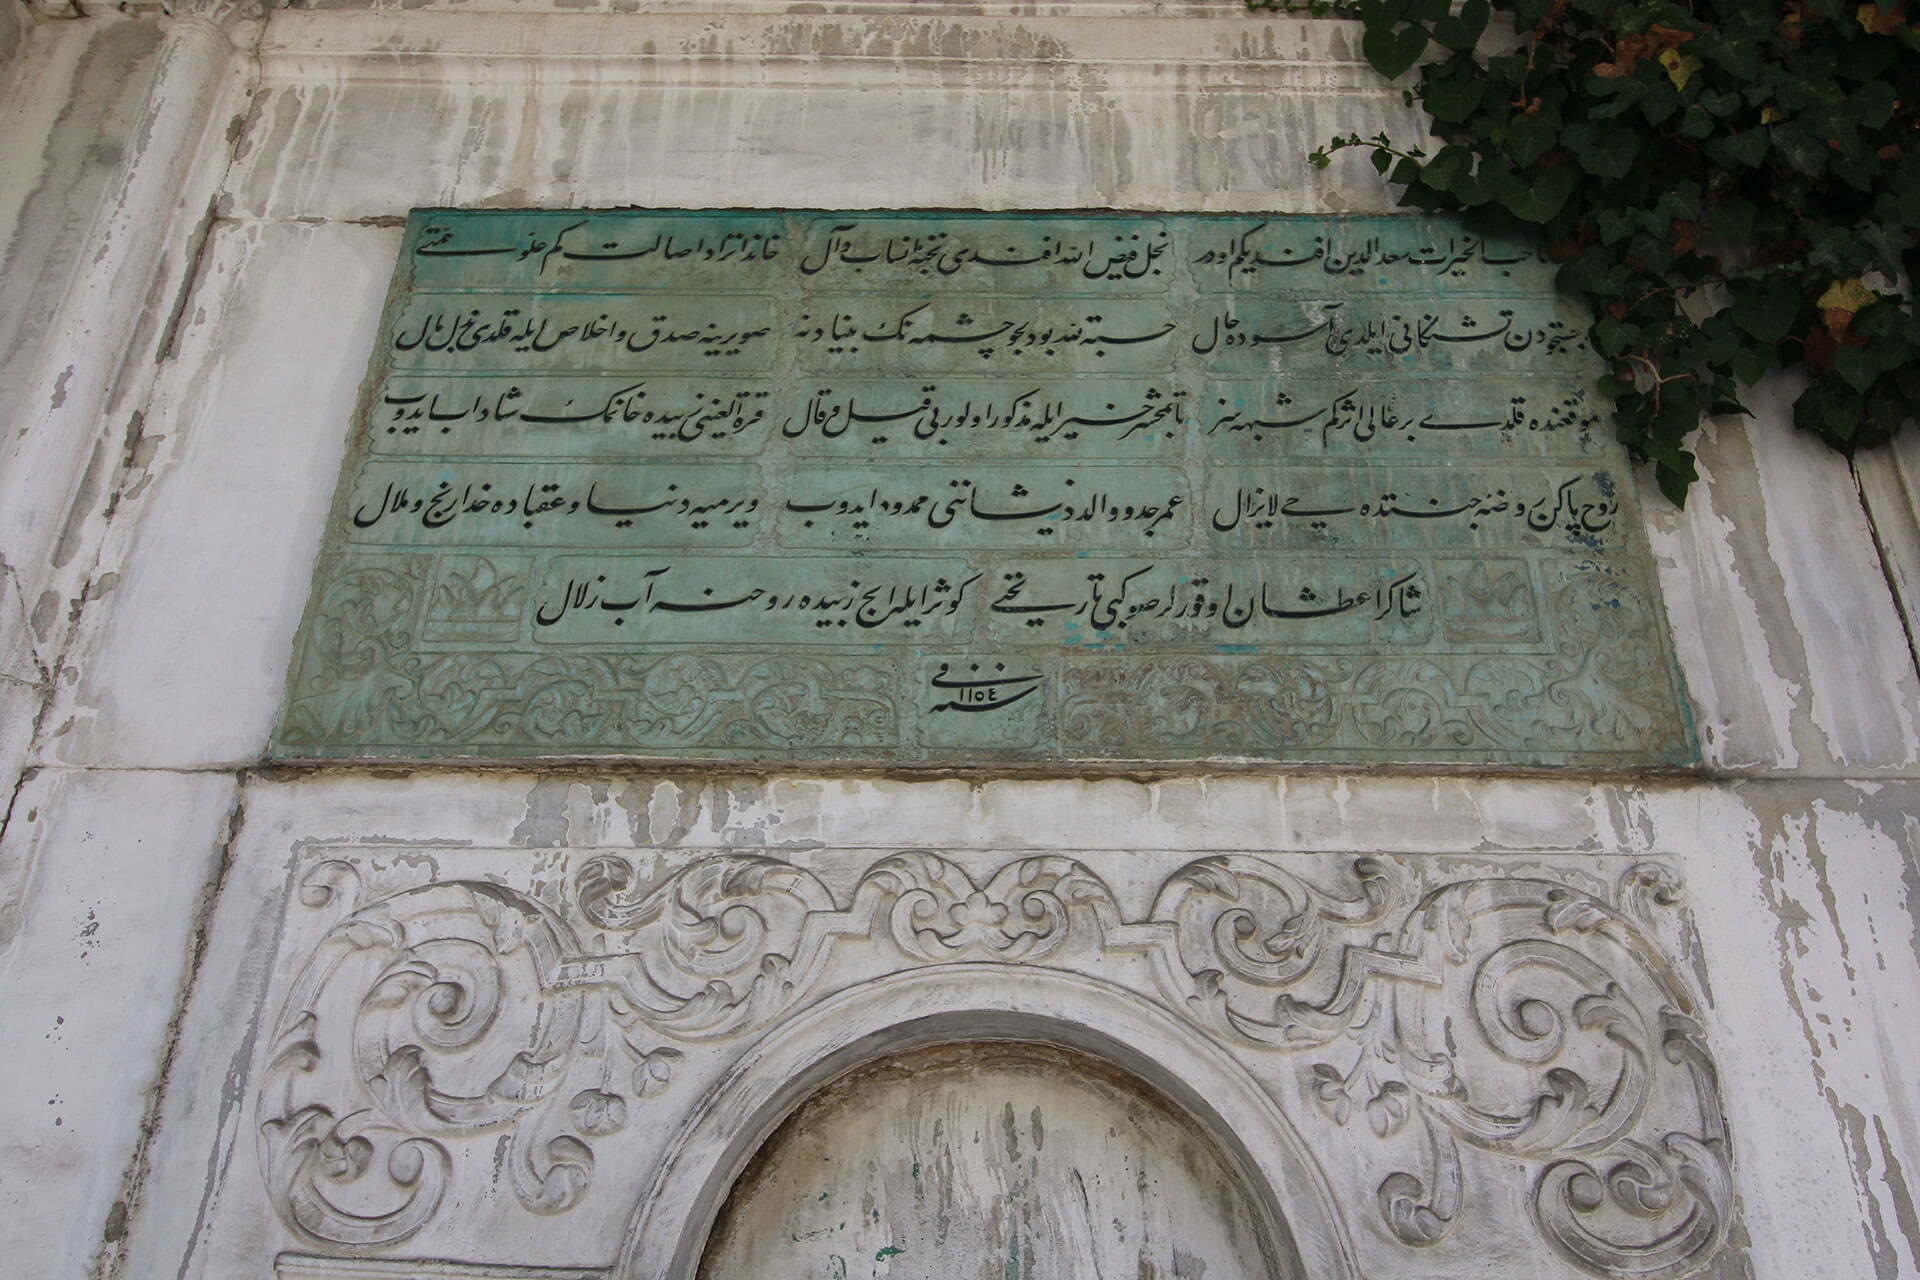 صاحب الخيرات سعد الدين افندى كم اودر نجل فيض الله افندى نخبهٔ انساب و آل خاندانزاد اصالت كم علو همتى
جستجودن تشنكانى ايلدى آسوده حال حسبة لله بو دلجو چشمه نك بنيادنه صويرينه صدق و اخلاص ايله قلدى بذل مال
موقعنده قلدى بر عالى اثر كم شبهه سز تا بمحشر خير ايله مذكور اولور بى قيل و قال قرة العينى زبيده خانمك شاداب ايدوب
روح پاكن روضهٔ جنتده حى لا يزال عمر جد و والد ذيشاننى ممدود ايدوب ويرميه دنيا و عقباده خدا رنج و ملال
شاكرا عطشان اوقورلر صو كبى تاريخنى كوثر ايله ايچ زبيده روحنه آب زلال
فى سنه ١١٥٤